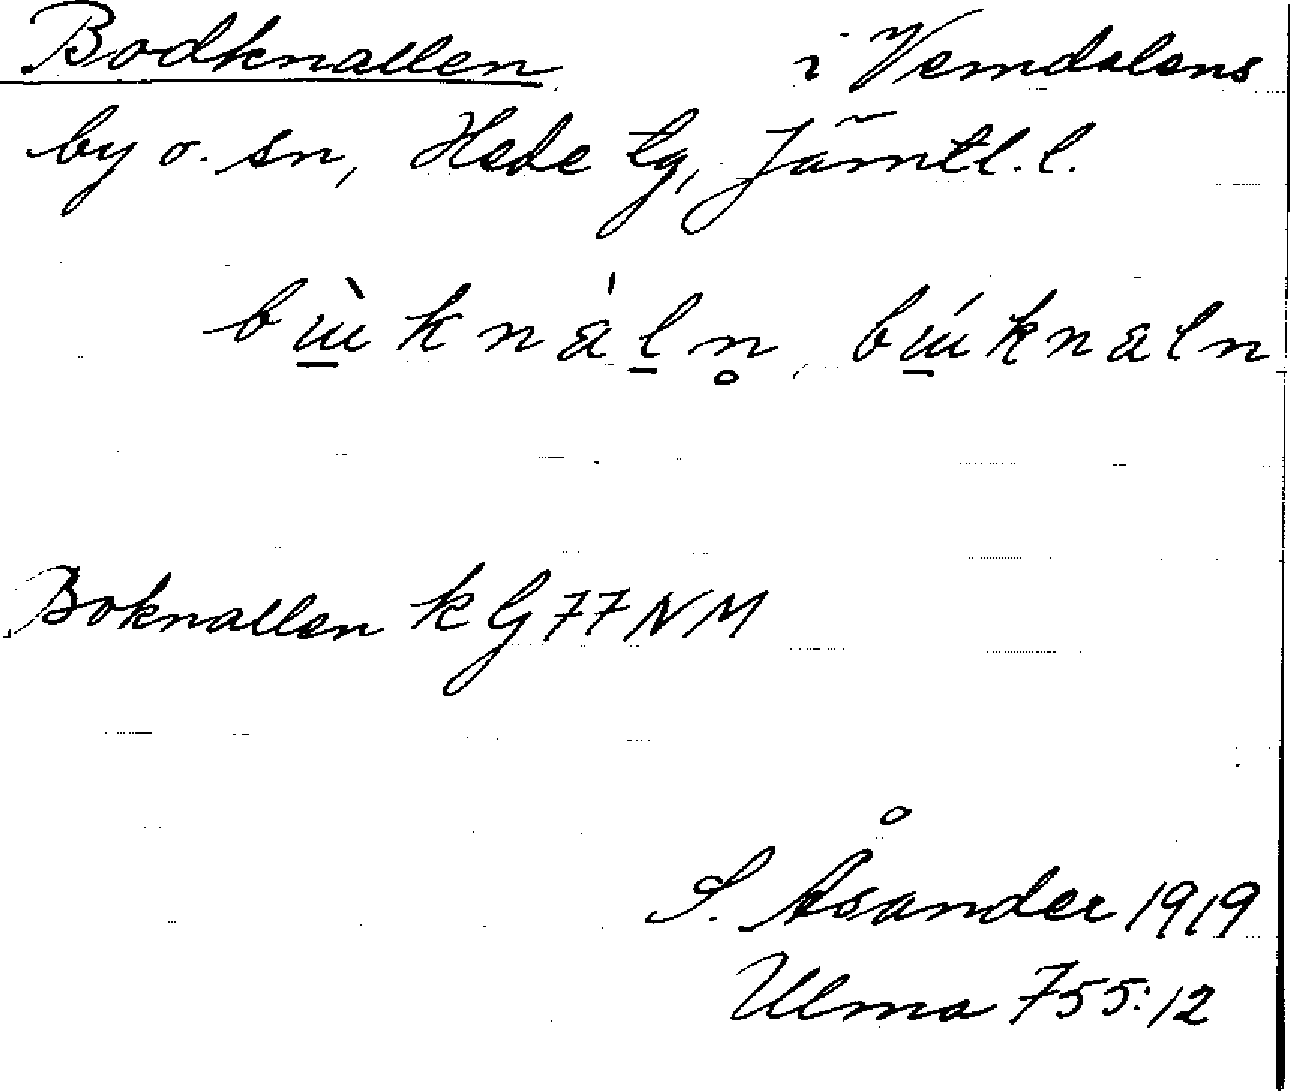 Bodknallen i Vemdalens
by o. sn, Hede tg, Jämtl. l.
Boknallen k G 77 NM
S. Åsander 1919
Ulma 755:12